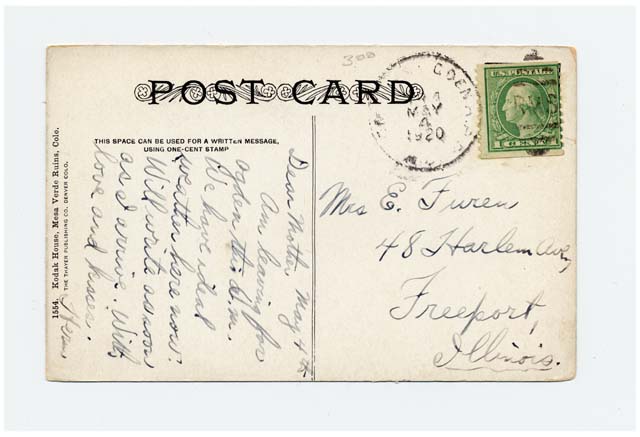 300
POST CARD
MAY
4
1920
U.S. POSTAGE
1 CENT 1
THIS SPACE CAN BE USED FOR A WRITTEN MESSAGE,
USING ONE-CENT STAMP
1554. Kodak House, Mesa Verde Ruins, Colo.
THE THAYER PUBLISHING CO. DENVER COLO.
May 4th
Dear Mother
Am leaving for
Ogden this a.m.
We have ideal
weather here now.
Will write as soon
as I arrive. With
love and kisses.
Mrs E. Furen
48 Harlem Ave,
Freeport,
Illinois.